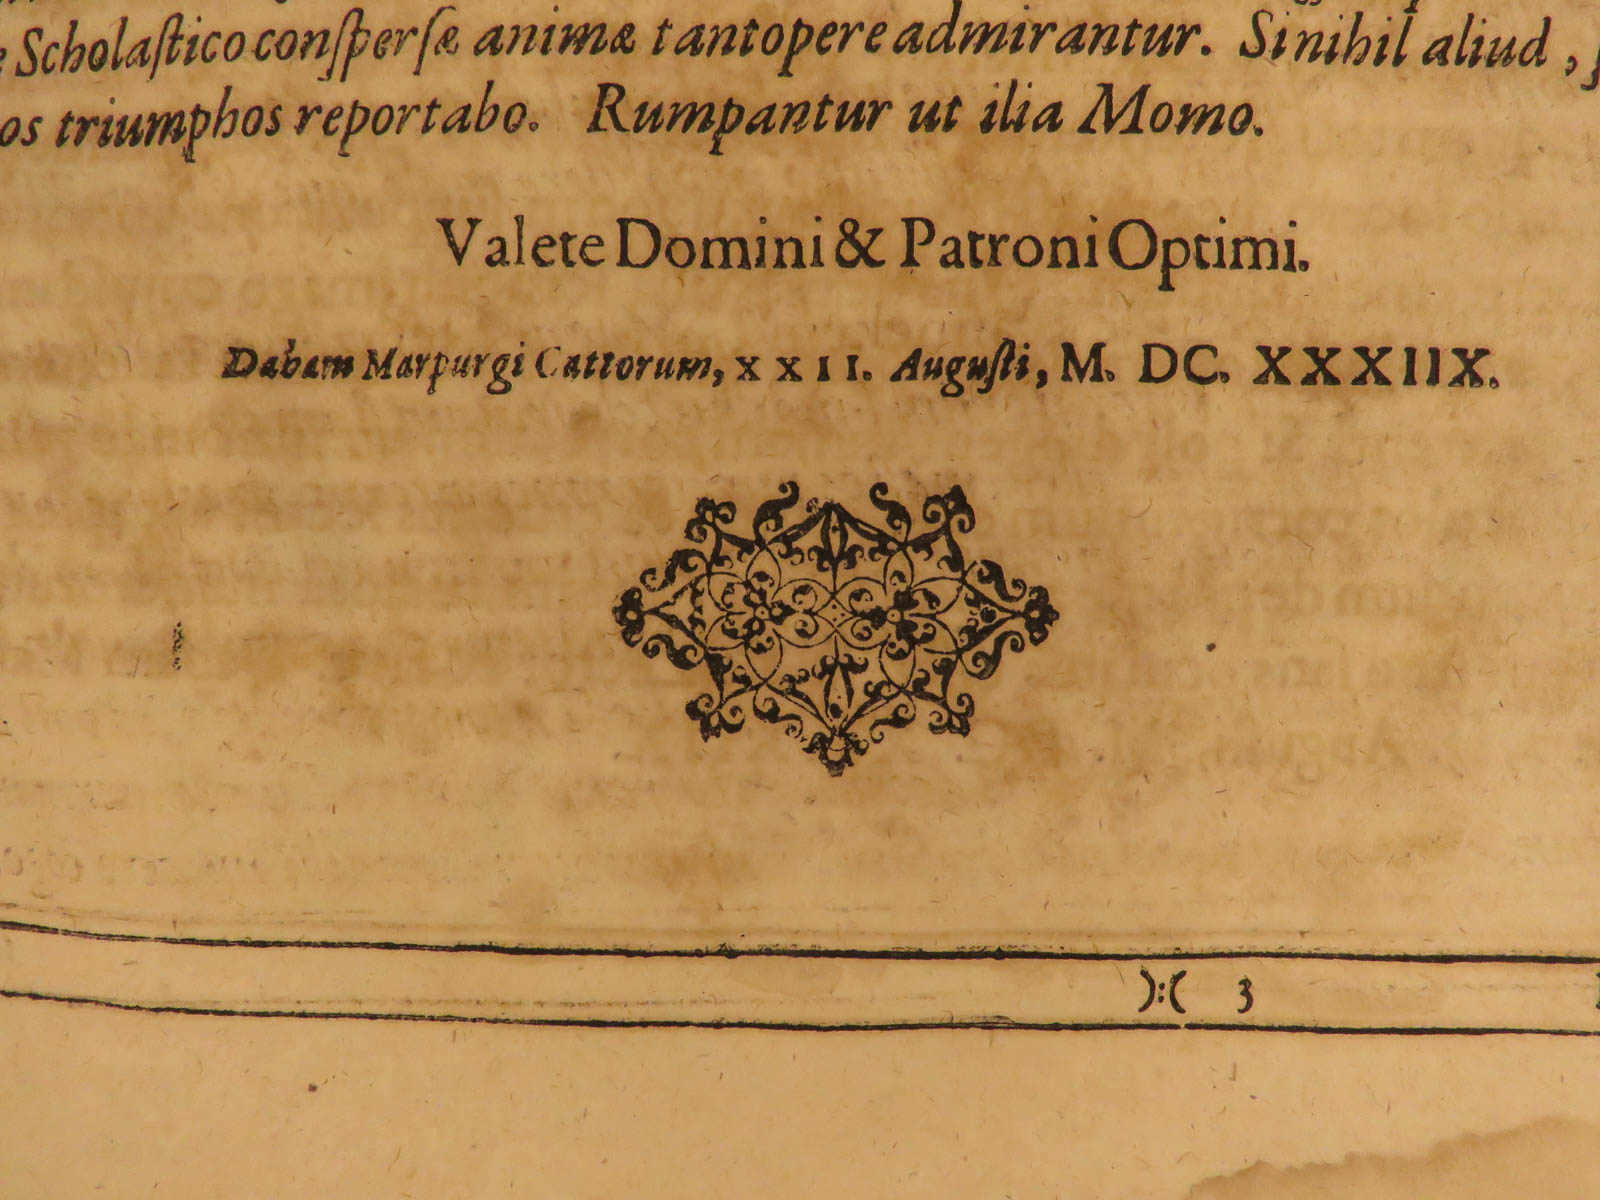 Scholaſtico conſperſæ animæ tantopere admirantur. Si nihil aliud,
os triumphos reportabo. Rumpantur ut ilia Momo.
Valete Domini & Patroni Optimi.
Dabam Marpurgi Cattorum, XXII. Auguſti, M. DC. XXXIIX.
):( 3